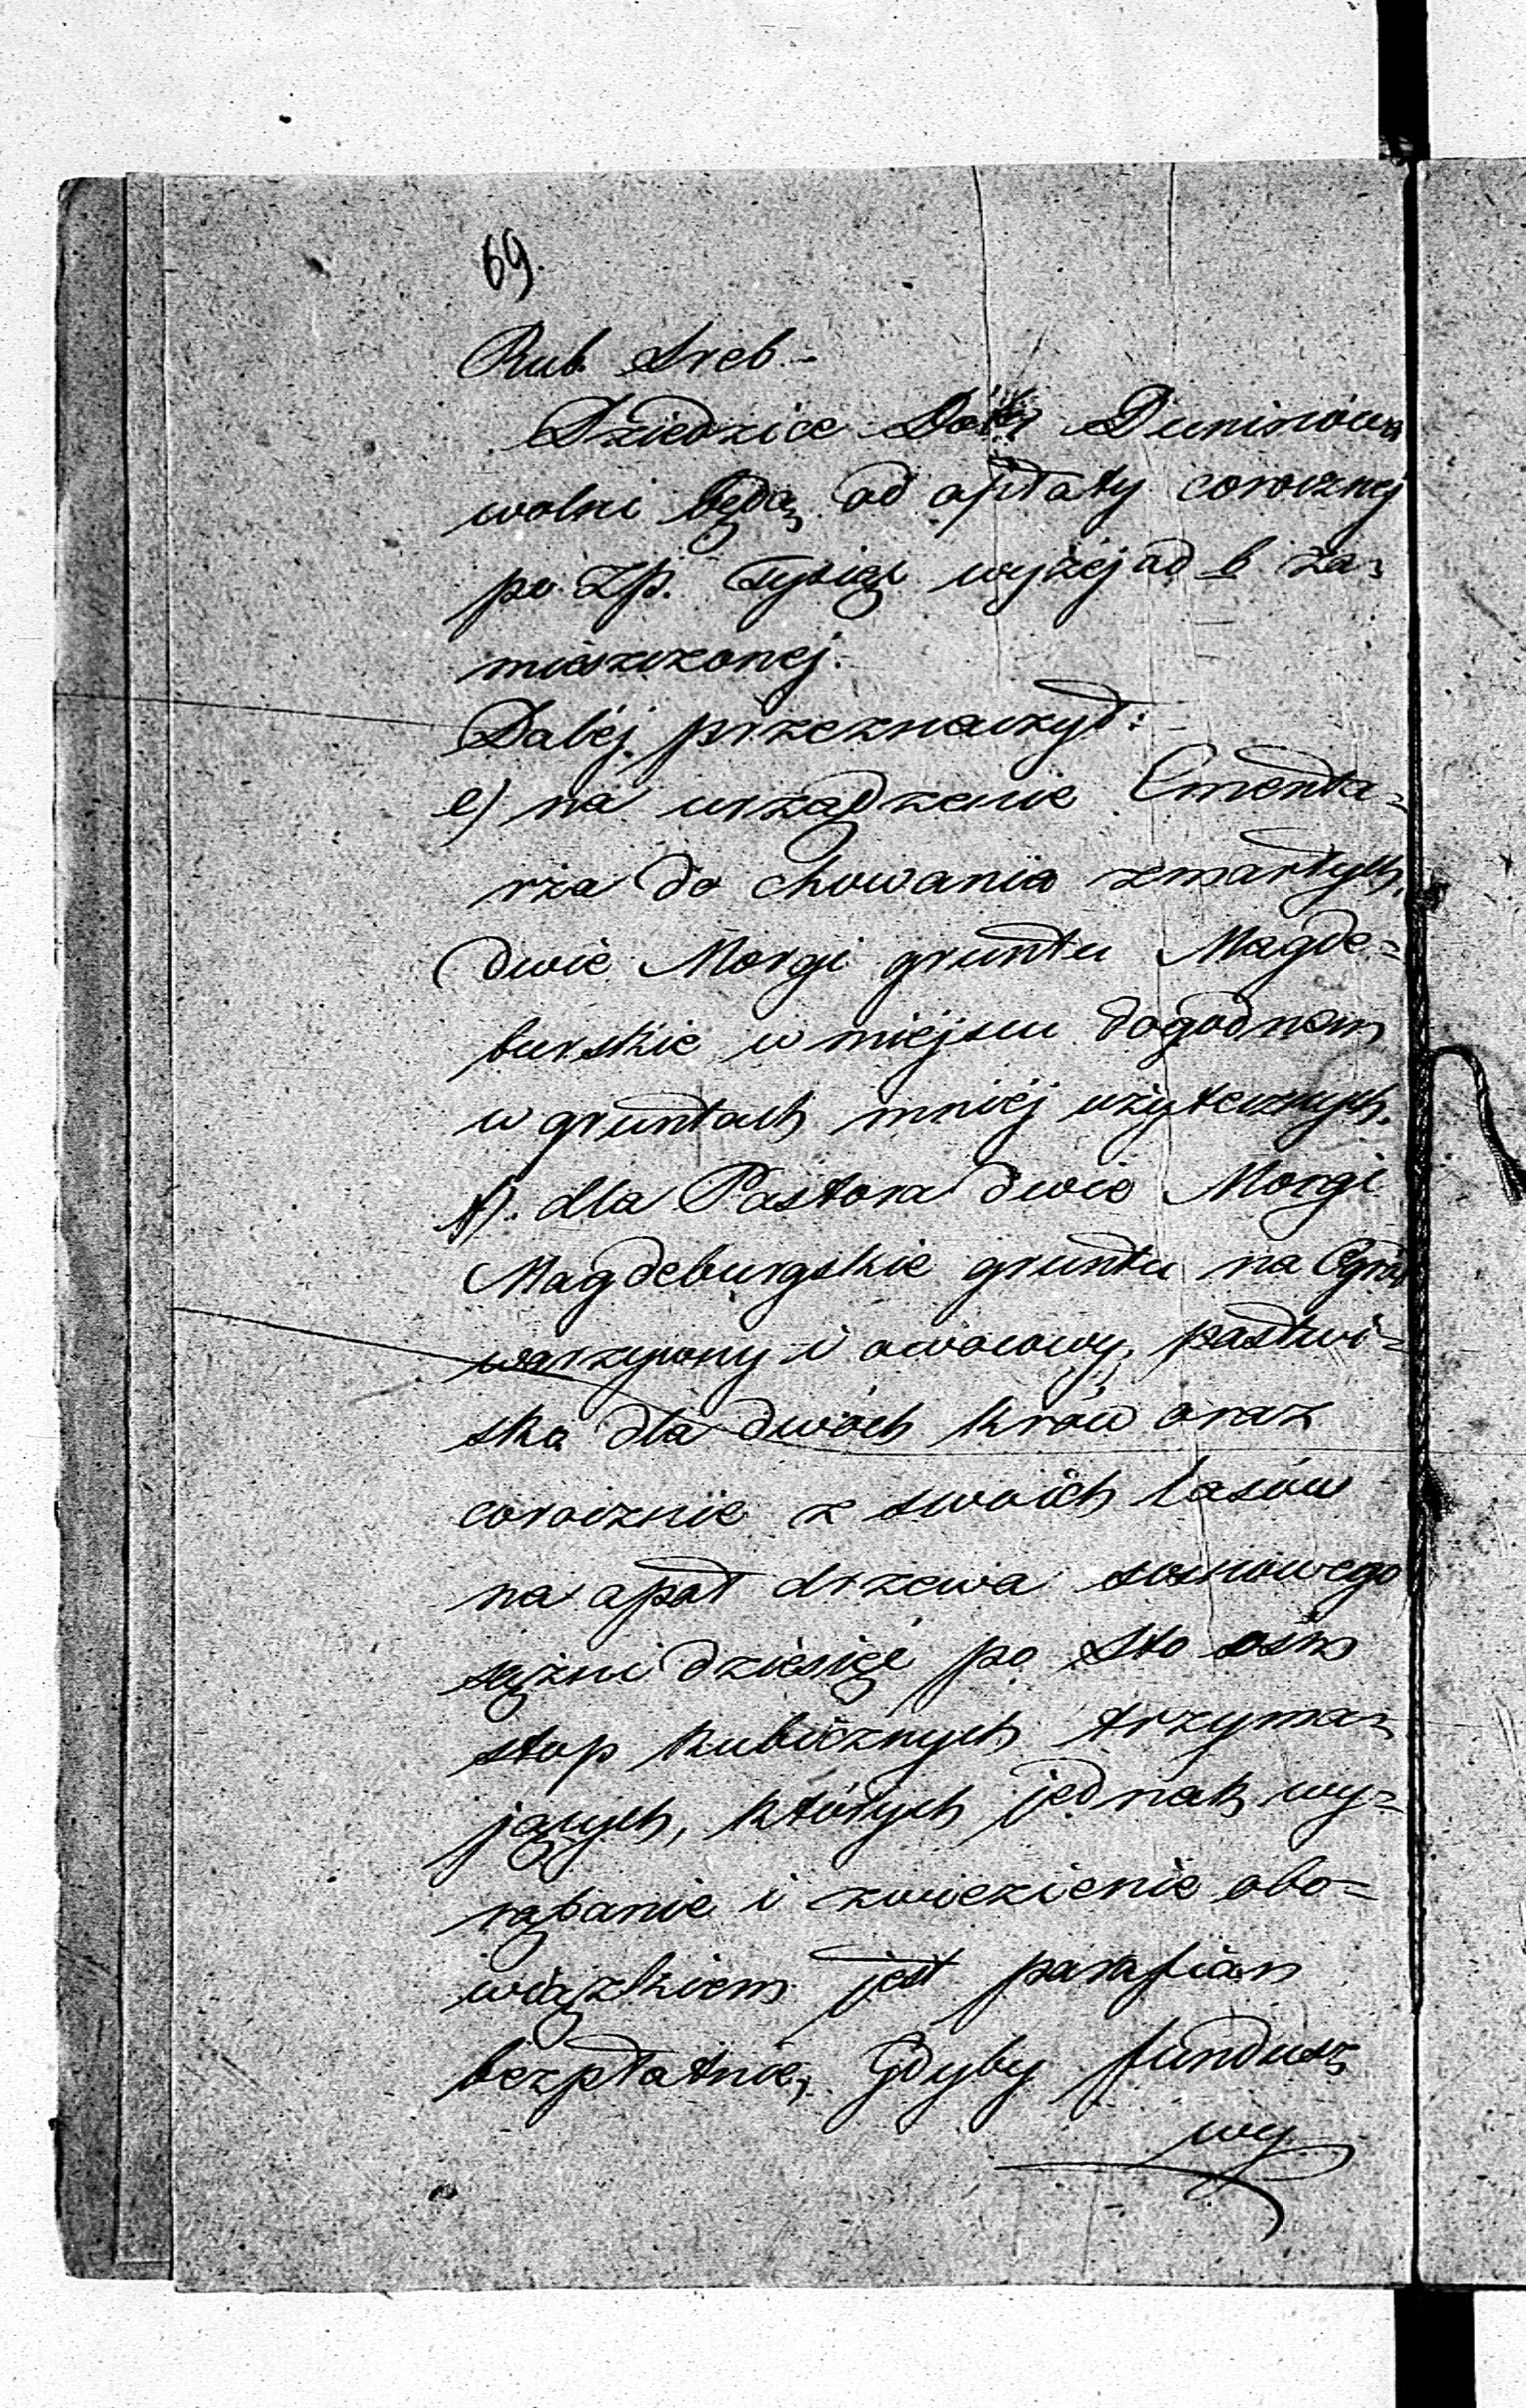 69.
Rub. Sreb.
Dziedzice Dóbr Duninowa
wolni będą od opłaty corocznej
po Zp. Tysiąc wyżej ad b za=
mieszczonej.
Daléj przeznaczył:
e) na urządzenie Cmenta=
rza do chowania zmarłych,
dwie Morgi gruntu Magde=
burskie w miéjscu dogodnem
w gruntach mniéj użytecznych.
f). dla Pastora dwie Morgi
Magdeburgskie gruntu na Ogród
warzywny i owocowy, pastwi=
ska dla dwóch krów oraz
corocznie z swoich lasów
na opał drzewa sosnowego
sążni dziesięć po sto ośm
stop kubicznych trzyma=
jących, których jednak wy=
rąbanie i zwiezienie obo=
wiązkiem jest parafian
bezpłatnie, Gdyby fundusz
wy